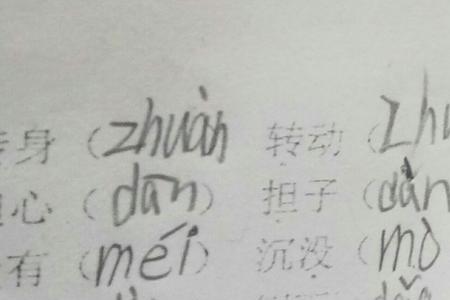 身（zhuàn 转动（zhu
心（dān）担子（dàn
有（méi）沉没（mò